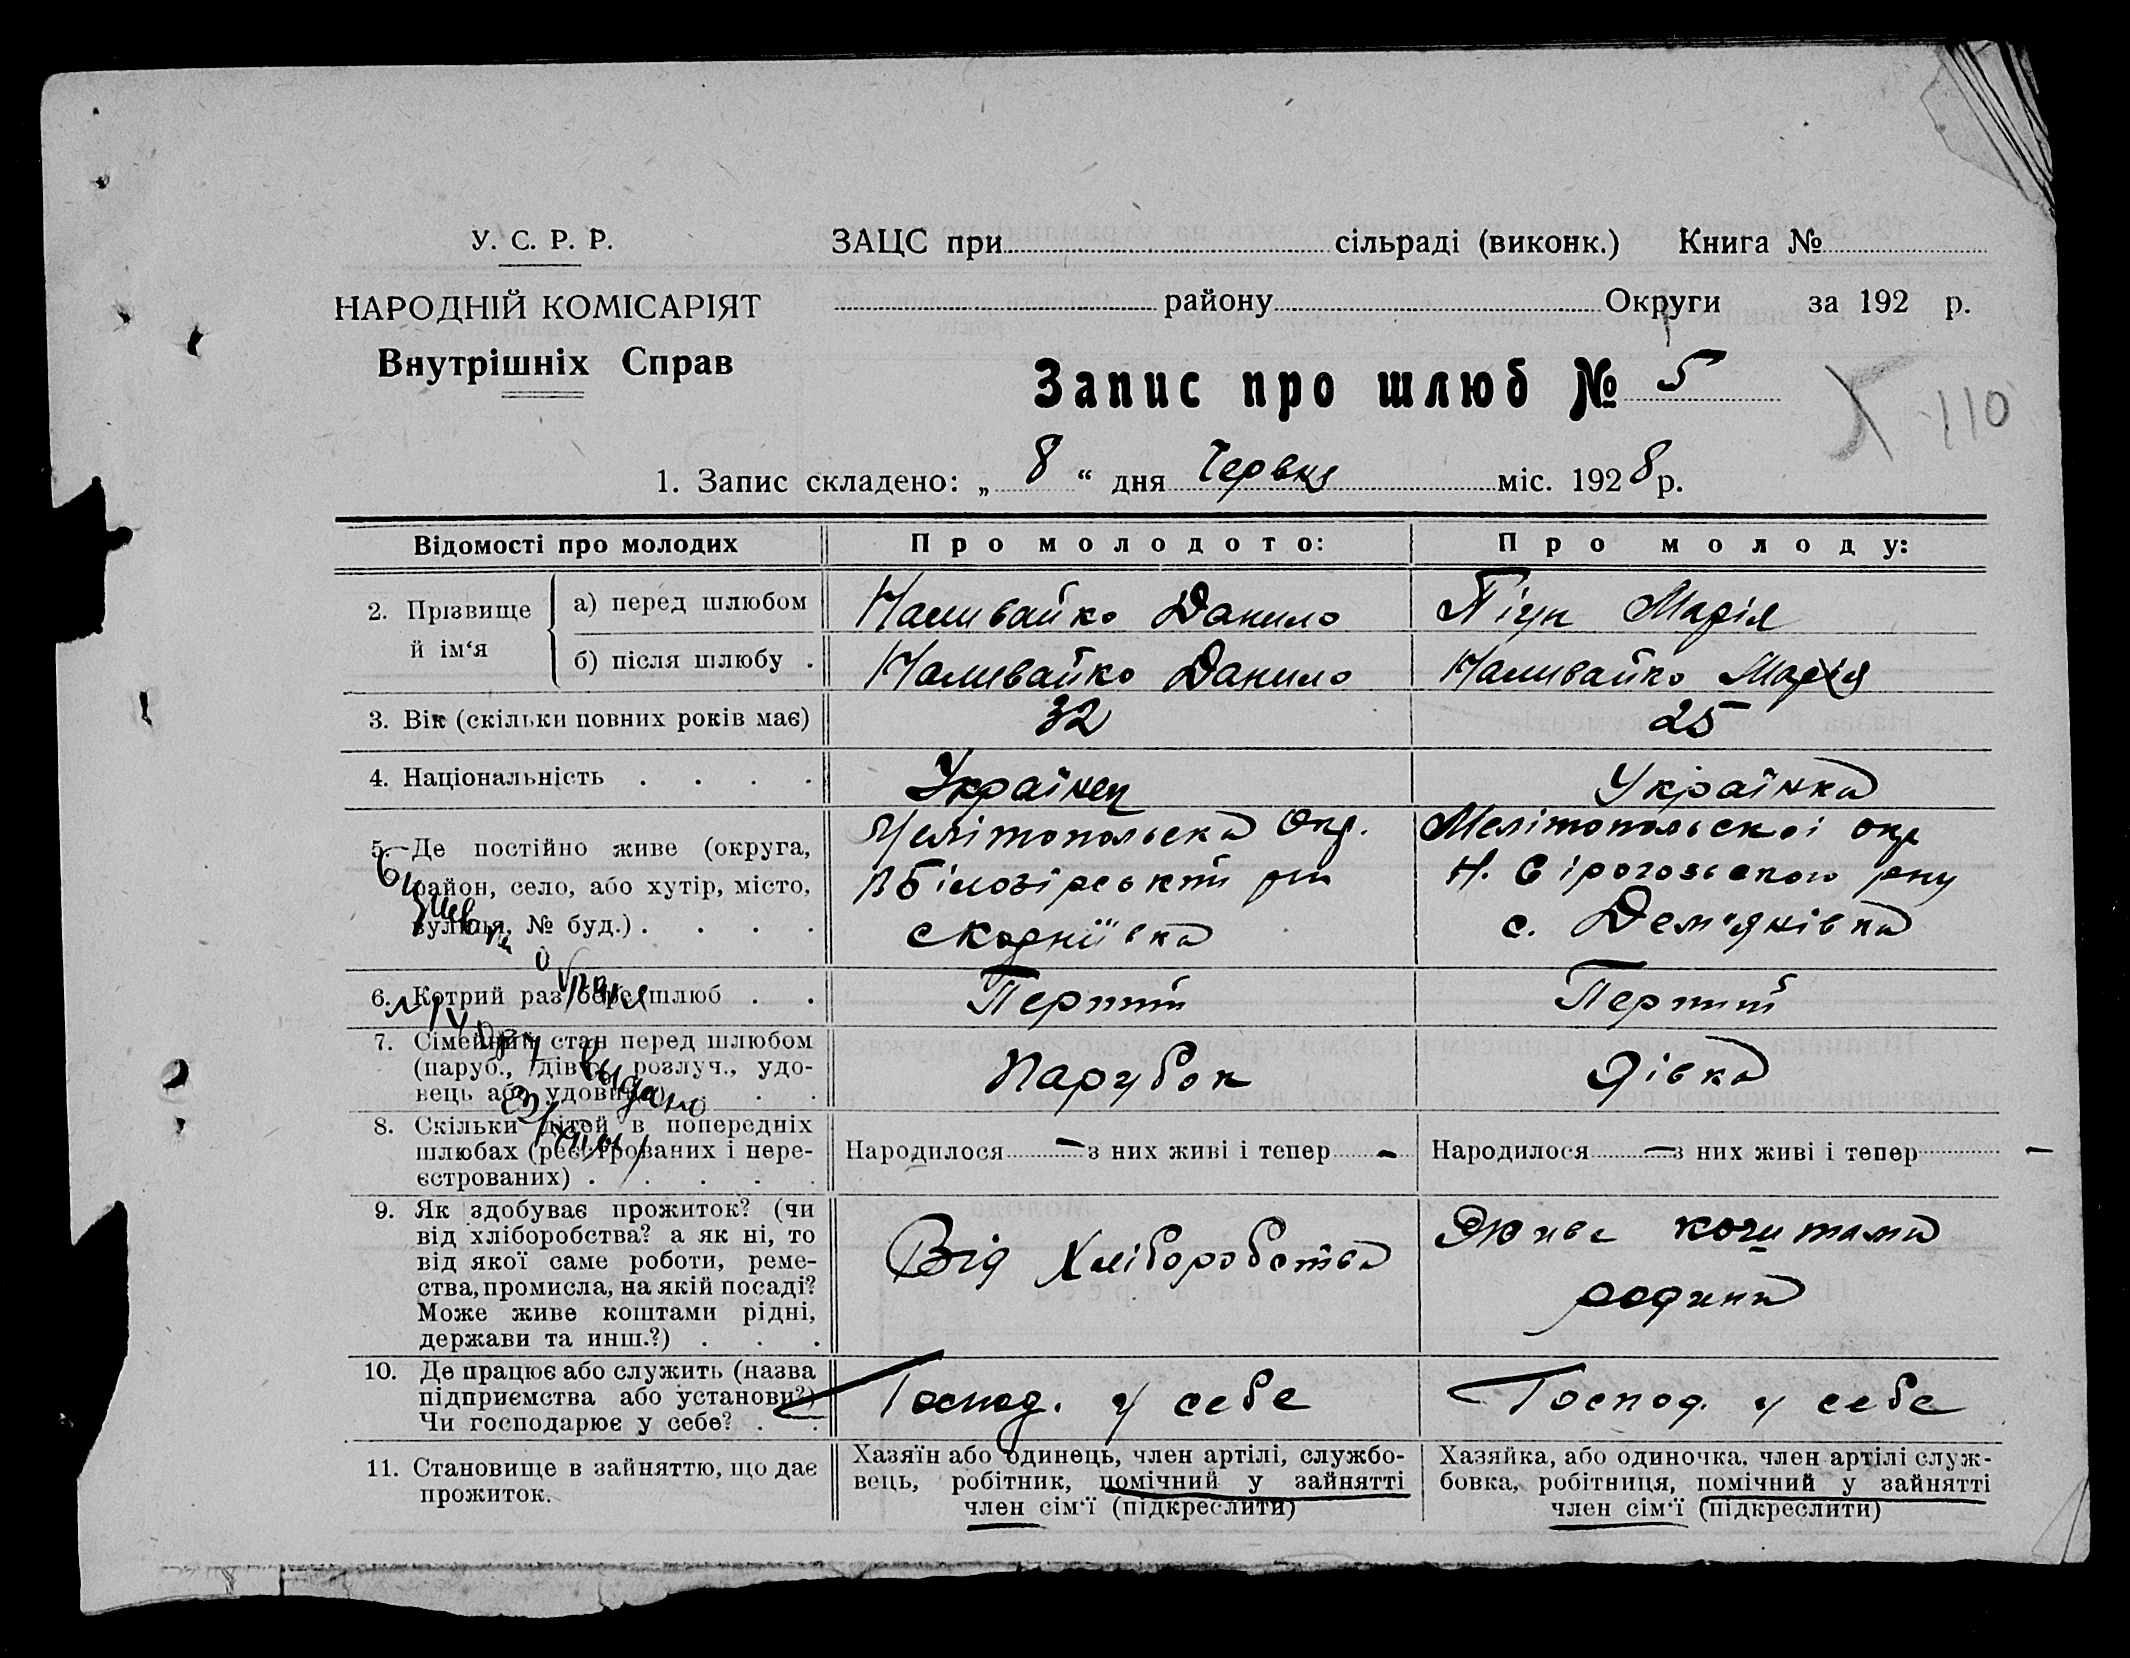 У. С. Р. Р.
НАРОДНІЙ КОМІСАРІЯТ
Внутрішніх Справ
ЗАЦС при сільраді (виконк.) Книга №
району Округи за 192 р.
Запис про шлюб № 5
110
1. Запис складено: „ 8 “ дня Червня міс. 1928 р.
Відомості про молодих
Про молодого:
Про молоду:
2. Прізвище й ім‘я
а) перед шлюбом
Наливайко Данило
Пігун Марія
б) після шлюбу .
Наливайко Данило
Наливайко Марія
3. Вік (скільки повних років має)
32
25
4. Національність . . . .
Українец
Українка
5. Де постійно живе (округа,
район, село, або хутір, місто,
вулиця, № буд.) . . . .
Мелітопольска Окр.
В Білозірський рн
с Корніївка
Мелітопольскоі окр
Н. Сірогозького рну
с. Дем'янівка
6. Котрий раз бере шлюб . .
Перший
Перший
7. Сімейний стан перед шлюбом
(паруб., дівка, розлуч., удо-
вець або удовиця) . . .
Парубок
Дівка
8. Скільки дітей в попередніх
шлюбах (реєстрованих і нере-
єстрованих) . . . . .
Народилося — з них живі і тепер —
Народилося — з них живі і тепер —
9. Як здобуває прожиток? (чи
від хліборобства? а як ні, то
від якої саме роботи, реме-
ства, промисла, на якій посаді?
Може живе коштами рідні,
держави та инш.?) . . .
Від Хліборобства
Живе коштами
родини
10. Де працює або служить (назва
підприємства або установи?)
Чи господарює у себе? . .
Господ. у себе
Господ. у себе
11. Становище в зайняттю, що дає
прожиток.
Хазяїн або одинець, член артілі, службо-
вець, робітник, помічний у зайнятті
член сім‘ї (підкреслити)
Хазяйка, або одиночка, член артілі служ-
бовка, робітниця, помічний у зайнятті
член сім‘ї (підкреслити)